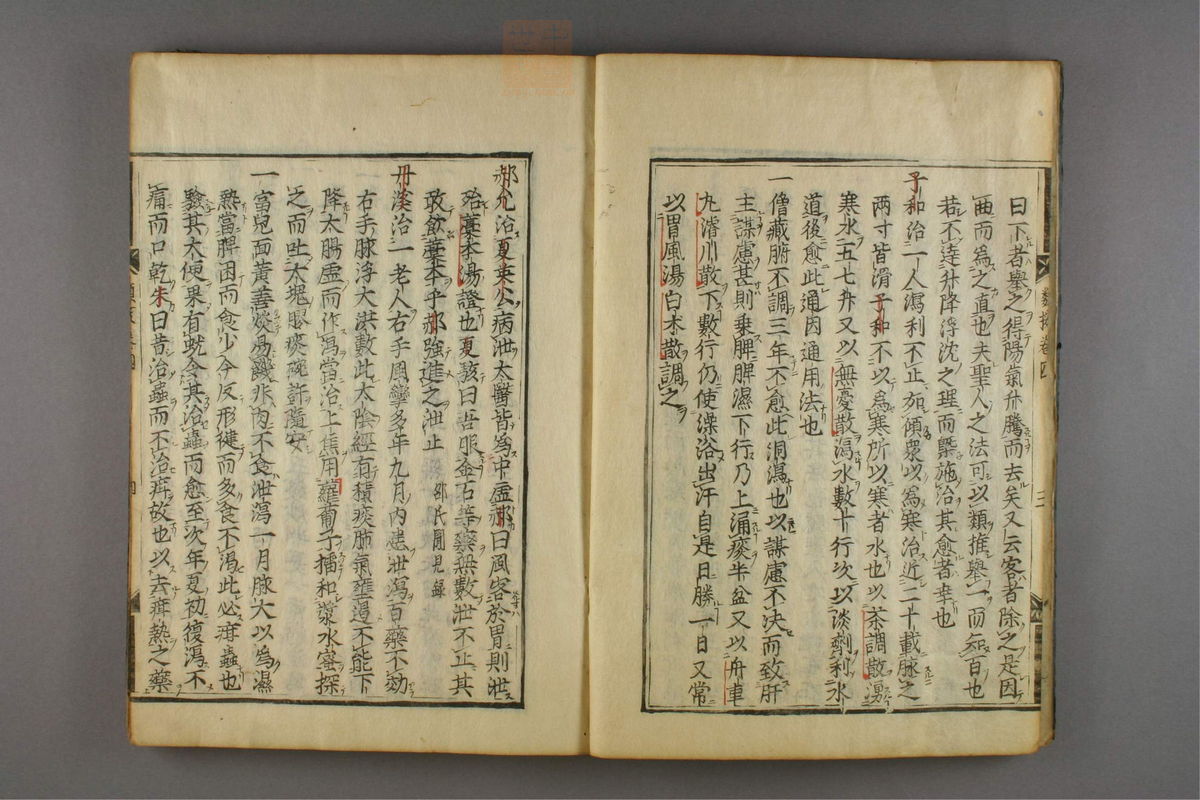 曰下者舉之得陽氣升騰而去矣又云客者除之是因
曲而為之直也夫聖人之法可以類推舉一而知百也
若不逹升降浮沈之理而槩施治其愈者幸也
子和治一人瀉利不止如傾衆以為寒治近二十載脉之
兩寸皆滑子和不以為寒所以寒者水也以茶調散湧
寒水五七升又以無憂散瀉水數十行次以淡劑利水
道後愈此通因通用法也
一僧藏腑不調三年不愈此洞瀉也以謀慮不决而致肝
主謀慮甚則乗脾脾濕下行乃上涌痰半盆又以舟車
丸濬川散下數行仍使澡浴出汗自是日勝一日又常
以胃風湯白朮散調之
郝允治夏英公病泄太醫皆為中虛郝曰風客於胃則泄
殆藁本湯證也夏駭曰吾服金石等藥無數泄不止其
敢飲藁本乎郝強進之泄止 邵氏聞見録
丹溪治一老人右手風攣多年九月内患泄瀉百藥不効
右手脉浮大洪數此太陰經有積痰肺氣壅遏不能下
降大腸虛而作瀉當治上焦用蘿蔔子擂和漿水蜜探
之而吐大塊膠痰碗許隨安
一富兒面黄善啖易饑非肉不食泄瀉一月脉大以為濕
熱當脾困而愈少今反形健而多食不渴此必疳蟲也
驗其大便果有蚘令其治蟲而愈至次年夏初復瀉不
痛而口乾朱曰昔治蟲而不治疳故也以去疳熱之藥